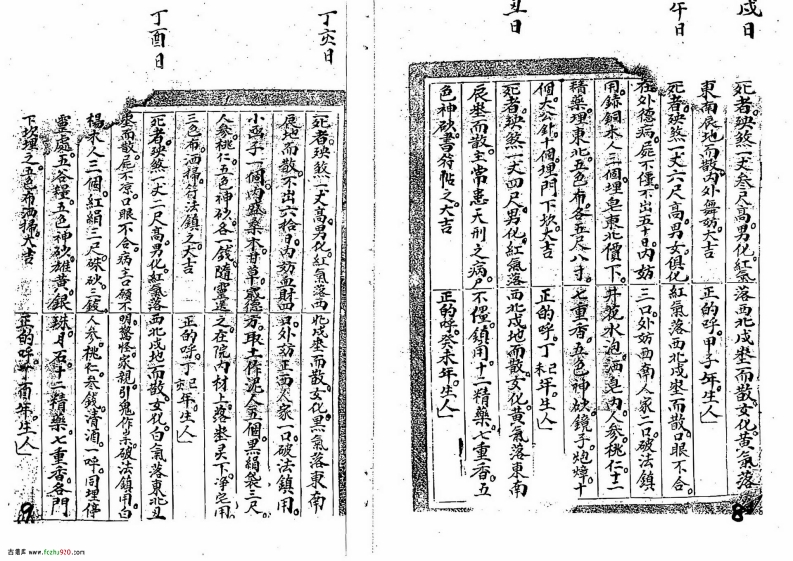 戌日
死者殃煞一丈叁尺高男化紅氣落西北戌坐而散女化黃氣落
東南辰地而散内外無妨大吉
正的呼甲子年生人
午日
死者殃煞一丈六尺高男女俱化紅氣落西北戌坐而散口眼不合
在外德病屍不僵不出五十日内妨三口外妨西南人家二口破法鎮
用銅木人三個埋皂東北價下井花水泡洒皂内人參桃仁十二
精藥埋東北五色布各五尺八寸七重香五色神砂鏡子炮煙十
個大公針十個埋門下坎大吉
正的呼丁卯年生人
丑日
死者殃煞一丈四尺男化紅氣落西北戌地而散女化黃氣落東南
辰坐而散主常患天刑之病不僵鎮用十二精藥七重香五
色神砂書符帖之大吉
正的呼癸未年生人
8
丁亥日
死者殃煞一丈高男化紅氣落西北戌坐而散女化黑氣落東南
辰地而散不出六拾日内妨血財四口外妨正西人家一口破法鎮用
小禹子一個内盛藥木甘草盛德方取土作泥人五個黑絹袋三尺
人參桃仁五色神砂各一錢隨靈送之在院内材上落坐灵下净宅用
三色布洒掃符法鎮之大吉
正的呼丁巳年生人
丁酉日
死者殃煞一丈二尺高男化紅氣落西北戌地而散女化白氣落東北丑
坐而散屍不凉口眼不合病主口碩不明驚怪家親引鬼作祟破法鎮用白
楊木人三個紅絹三尺硃砂三錢人參桃仁叁錢清酒一呼同埋停
靈處五谷糧五色神砂雄黃銀珠月石十二精藥七重香各門
下坎埋之五色布洒掃大吉
正的呼年生人
9
古易库 www.fczhu920.com